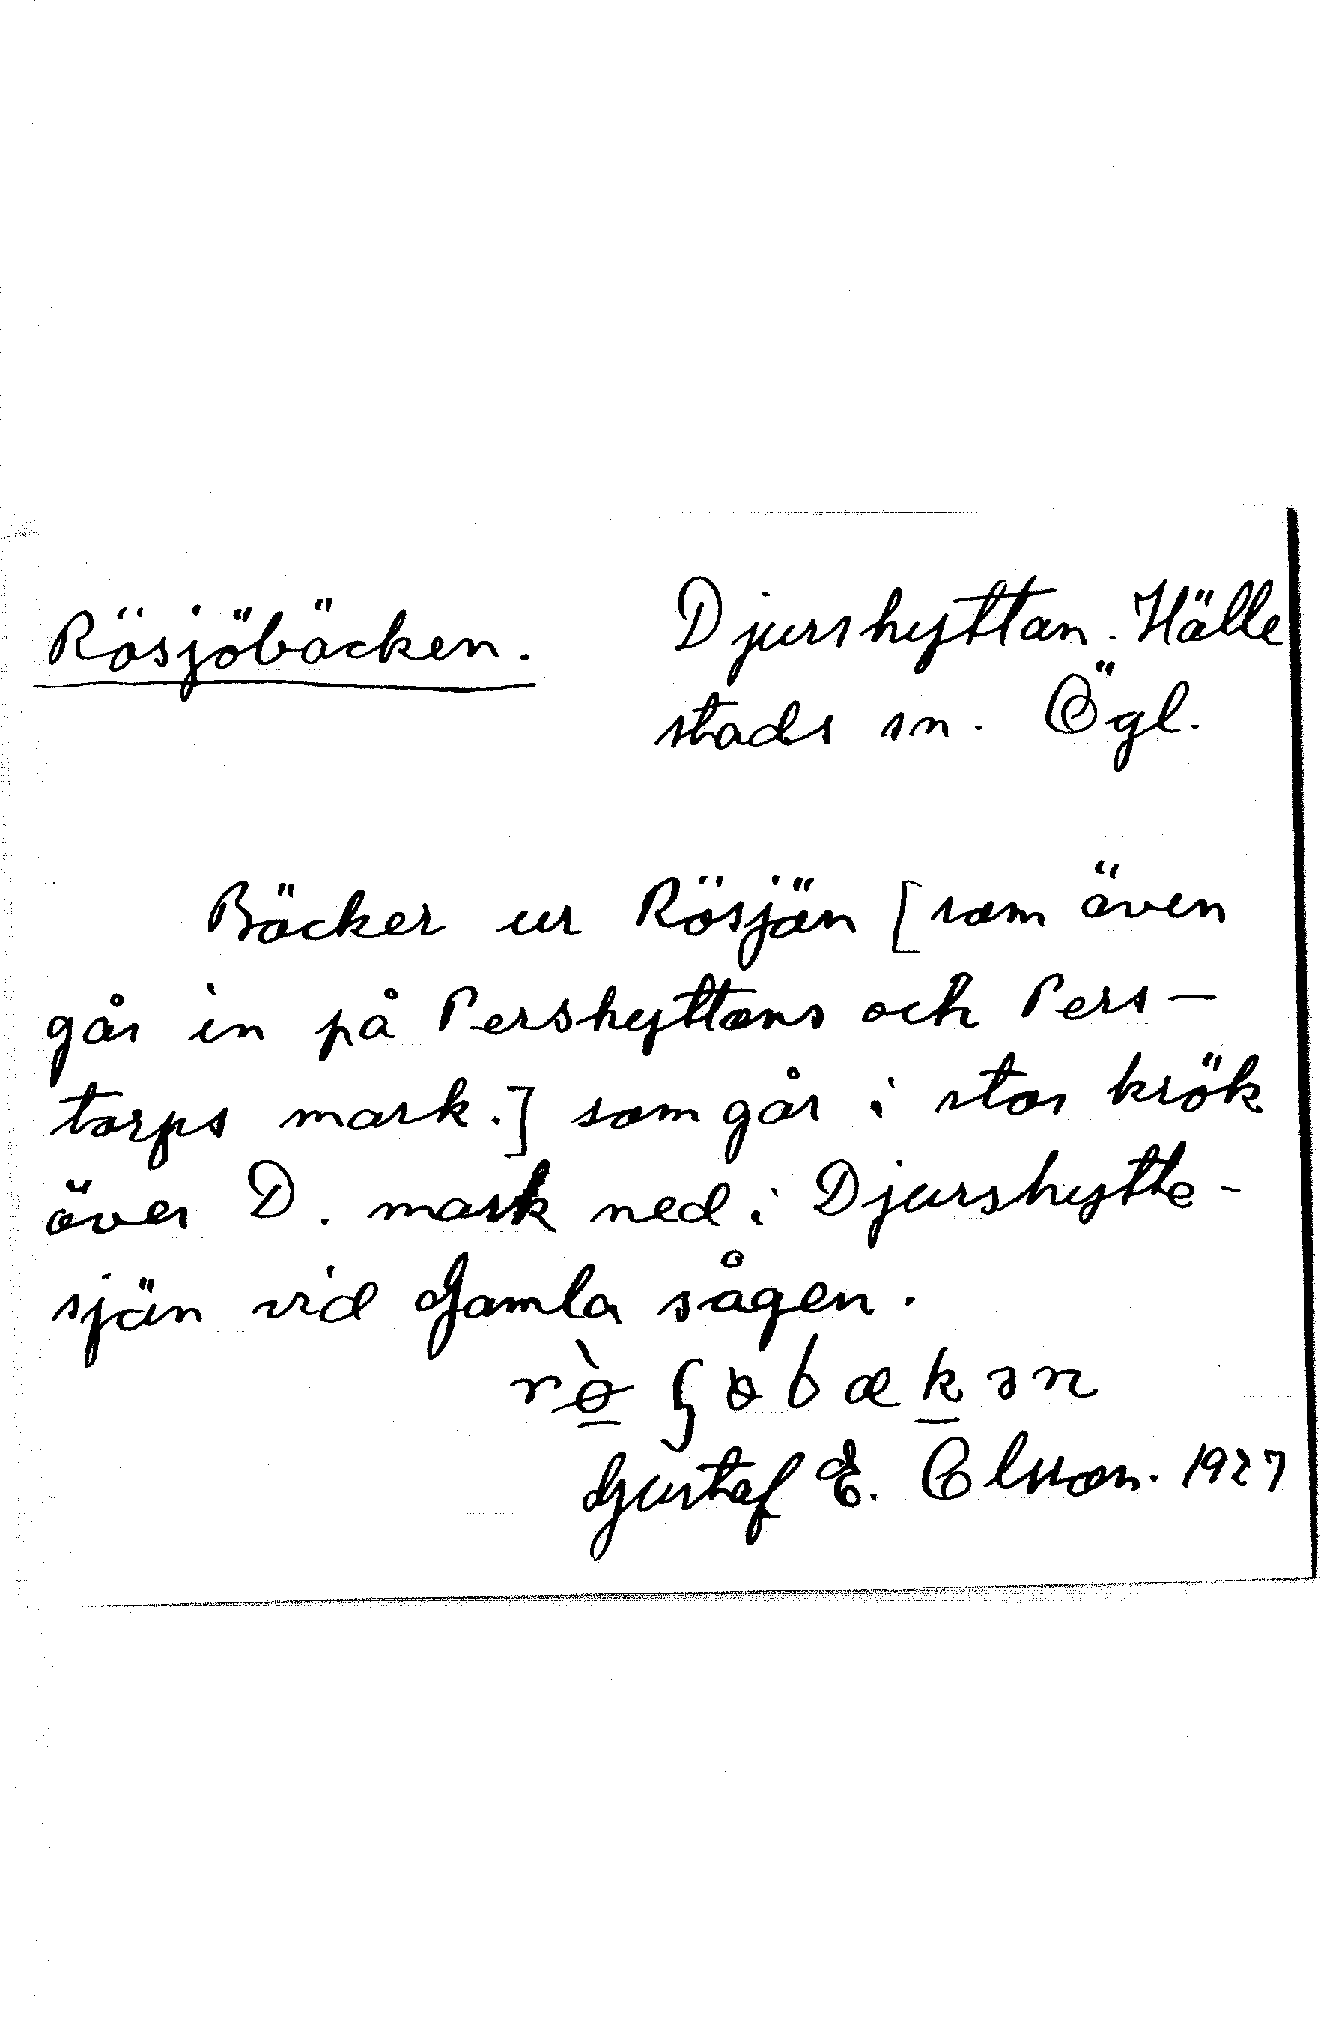 Rösjöbäcken. Djurshyttan. Hälle
stads sn. Ögl.
Bäcker ur Rösjön [som även
går in på Pershyttans och Pers-
torps mark.] som går i stor krök
över D. mark ned i Djurshytte-
sjön vid Gamla sågen.
Gustaf E. Olsson. 1927